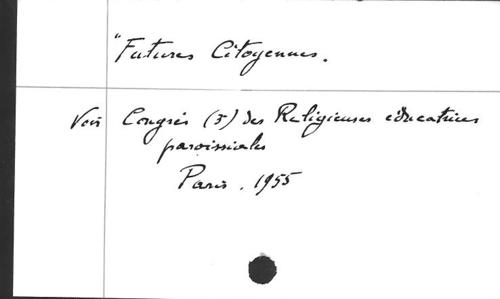 "Futures Citoyennes.
Voir Congrès (3) des Religieuses éducatrices
paroissiales
Paris. 1955